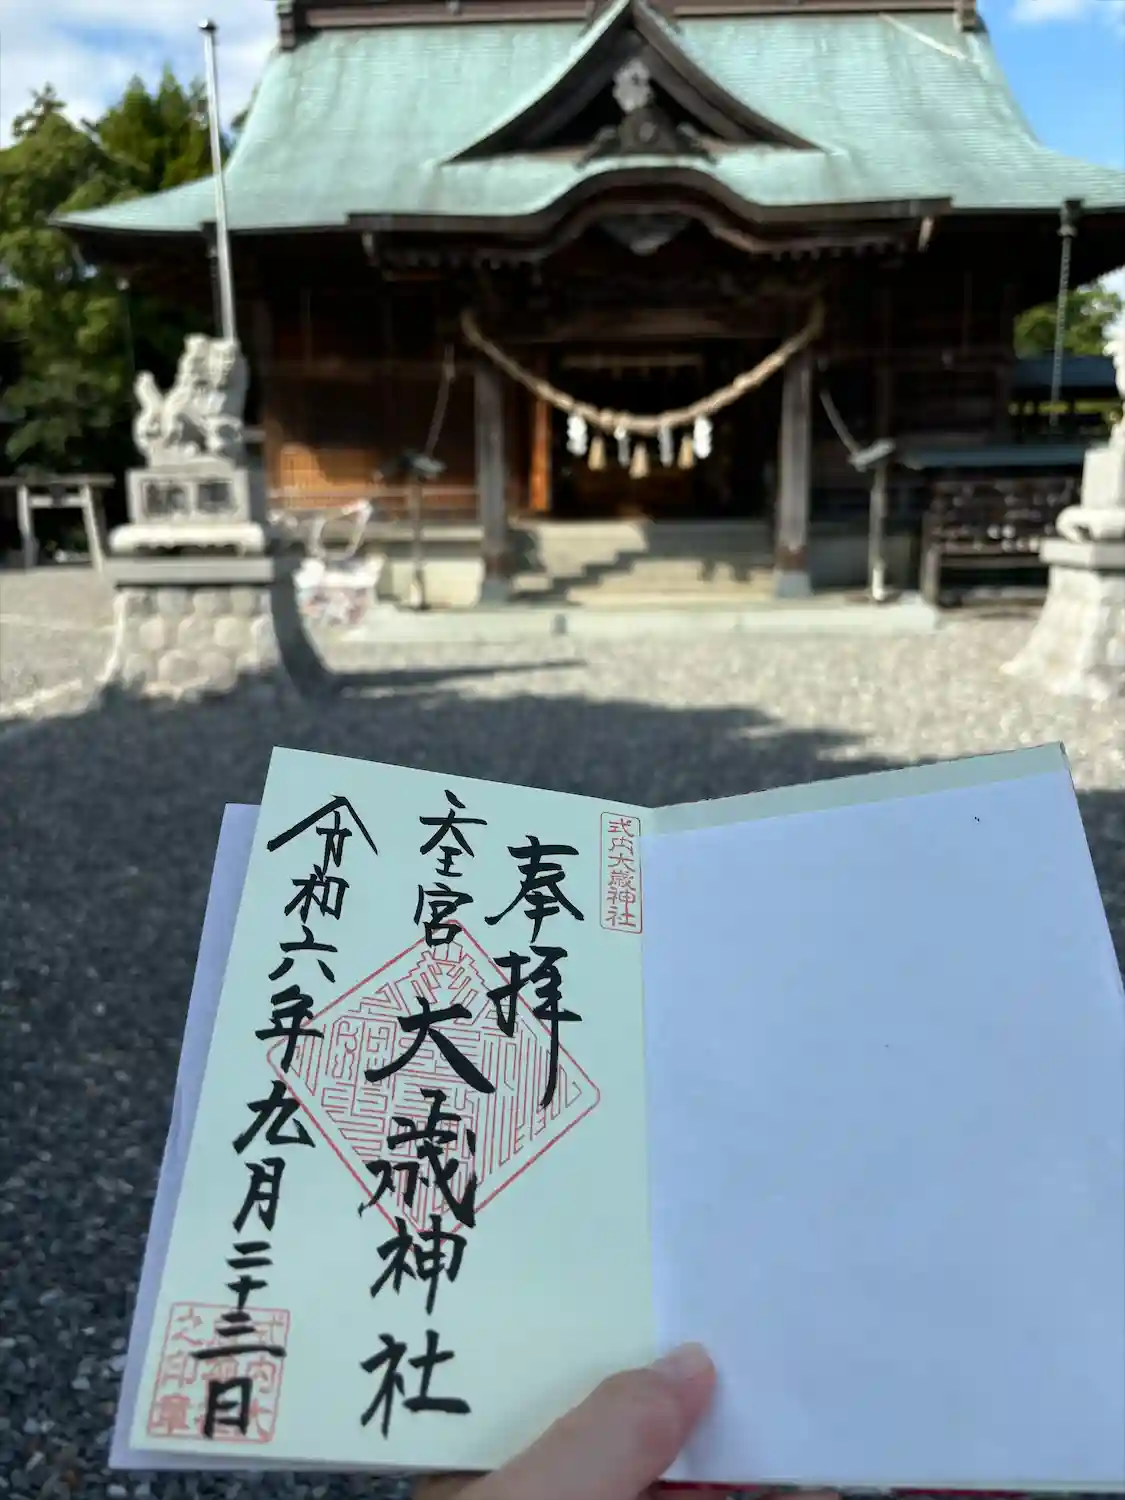 式内大歳神社
奉拝
天王宮 大歳神社
令和六年九月二十三日